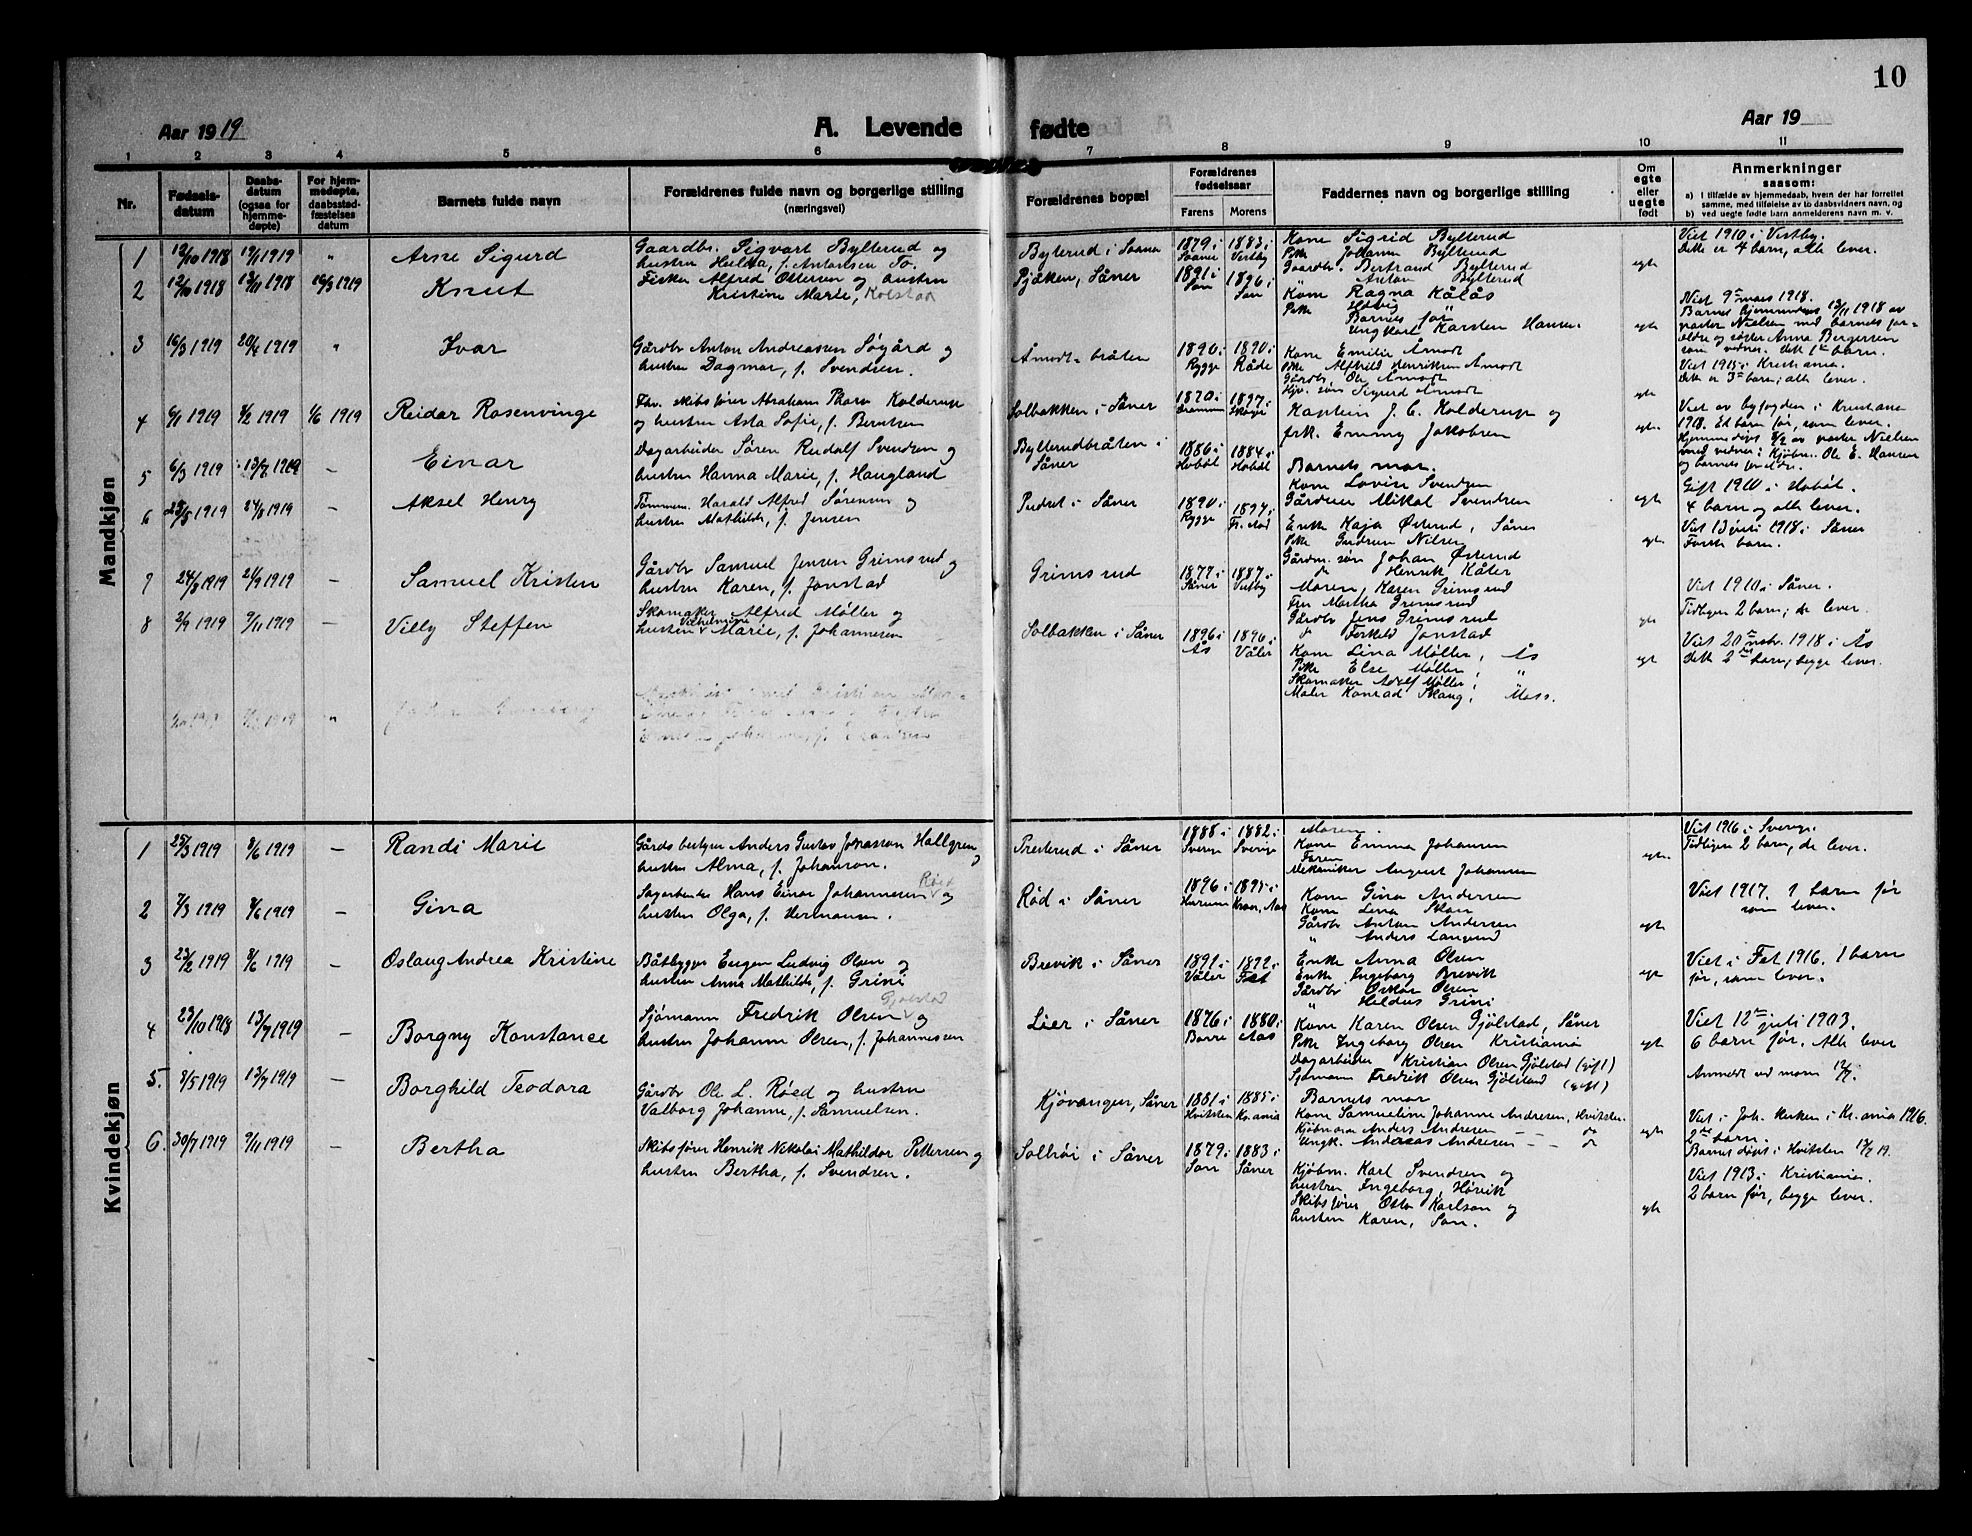 10
Aar 1919
A. Levende fødte
Aar 19
1 2 3 4 5 6 7 8 9 10 11
Nr.
Fødsels-
datum
Daabs-
datum
(ogsaa for
hjemme-
døpte)
For hjem-
medøpte,
daabsstad-
fæstelses
datum
Barnets fulde navn
Forældrenes fulde navn og borgerlige stilling
(næringsvei)
Forældrenes bopæl
Forældrenes
fødselsaar
Farens Morens
Faddernes navn og borgerlige stilling
Om
egte
eller
uegte
født
Anmerkninger
saasom:
a) i tilfælde av hjemmedaab, hvem der har forrettet
samme, med tilføielse av to daabsvidners navn, og
b) ved uegte fødte barn anmelderens navn m. v.
Mandkjøn
1 12/10 1918 19/1 1919 " Arne Sigurd
Gaardbr. Sigvart Bylterud og
hustru Hulda, f. Antonsen To.
Bylterud i Saaner
1879 i Saaner
1883 i Vestby
Kone Sigrid Bylterud
Pike Johanne Bylterud
Gaardbr. Bertrand Bylterud
Anton Bylterud
egte
Viet 1910 i Vestby.
Dette er 4 barn, alle lever.
2 12/10 1918 13/11 1918 16/3 1919 Knut
Fisker Alfred Ottersen og hustru
Kristine Marie, Kolstad
Saaner
1891 i Son
1896 i Son
Kone Ragna Kålås
Pike Hedvig
Barnets far
Ungkarl Karsten Hansen
egte
Viet 9de mars 1918.
Barnet hjemmedøpt 13/11 1918 av
pastor Nielsen med barnets for-
ældre og søster Anna Bergersen
som vidner. Dette 1ste barn.
3 16/3 1919 20/4 1919 " Ivar
Gårdbr Anton Andreassen Søgård og
hustru Dagmar, f. Svendsen.
Åmodt-bråten
1890 i Rygge
1890 i Råde
Kone Emilie Åmodt
Pike Alfhild Henriksen Åmodt
Gårdbr. Ole Åmodt
Sigurd Åmodt
egte
Viet 1915 i Kristiania.
Dette er 3de barn; alle lever.
4 6/1 1919 9/2 1919 1/6 1919 Reidar Rosenvinge
Fhv. skibsfører Abraham Thorn Kolderup
og hustru Asta Sofie, f. Berntsen
Solbakken i Såner
1870 i Drammen
1897 i
Kaptein J. C. Kolderup og
frk. Emmy Jakobsen
egte.
Viet av byfogden i Kristiania
1918. Et barn før, som lever.
Hjemmedøpt 9/2 av pastor Nielsen
med vidner: Kjøbm. Ole E. Hansen
og barnets forældre.
5 6/3 1919 13/7 1919 – Einar
Dagarbeider Søren Rudolf Svendsen og
hustru Hanna Marie, f. Haugland
Bylterudbråten i
Såner
1886 i Hobøl
1884 i Hobøl
Barnets mor.
Kone Lovise Svendsen
Gårdeier Mikal Svendsen
egte
Gift 1910 i Hobøl.
4 barn og alle lever.
6 23/5 1919 24/8 1919 – Aksel Henry
Tømmerm. Harald Alfred Sørensen og
hustru Mathilde, f. Jensen
Pudret i Såner
1890 i Rygge
1894 i Fr.stad
Enke Kaja Østerud, Såner
Pike Gudrun Nilsen
Gårdm. søn Johan Østerud
d° Henrik Kåter
egte
Viet 13 juli 1918 i Såner
Første barn.
7 24/8 1919 21/9 1919 – Samuel Kristen
Gårdbr Samuel Jensen Grimsrud og
hustru Karen, f. Jonstad
Grimsrud
1877 i Såner
1887 i Vestby
Moren, Karen Grimsrud
Fru Martha Grimsrud
Gårdbr Jens Grimsrud
d° Torkild Jonstad
egte
Viet 1910 i Såner.
Tidligere 2 barn; de lever.
8 2/9 1919 9/11 1919 – Villy Steffen
Skomaker Alfred Møller og
hustru Vilhelmine Marie, f. Johannesen
Solbakken i Såner
1896 i Ås
1896 i Våler
Kone Lina Møller, Ås
Pike Else Møller "
Skomaker Adolf Møller, "
Maler Konrad Skaug, Moss.
egte
Viet 20de novbr. 1918 i Ås
Dette 2det barn; begge lever.
Kvindekjøn
1 25/3 1919 8/6 1919 – Randi Marie
Gårdsbestyrer Anders Gustav Jonasson Hallgren og
hustru Alma, f. Johanson.
Presterud i Såner
1888 i Sverige
1882 i Sverige
Moren.
Kone Emma Johansen
Faren
Mekaniker August Johansen
egte
Viet 1916 i Sverige.
Tidligere 2 barn, de lever.
2 7/3 1919 8/6 1919 – Gina
Sagarbeider Hans Einar Johannesen Røed og
hustru Olga, f. Hermansen.
Rød i Såner
1896 i Hurum
1895 i
Kone Gina Andersen
Kone Lina
Gårdbr Anton Andersen
" Anders Langrud
egte
Viet 1917. 1 barn før
som lever.
3 23/2 1919 8/6 1919 – Oslaug Andrea Kristine
Båtbygger Eugen Ludvig Olsen og
hustru Anna Mathilde, f. Grini
Brevik i Såner
1891 i Våler
1892 i Fet
Enke Anna Olsen
Enke Ingeborg Brevik
Gårdbr Oskar Olsen
" Hildus Grini
egte
Viet i Fet 1916. 1 barn
før, som lever.
4 23/10 1918 13/7 1919 – Borgny Konstance
Sjømann Fredrik Olsen Gjølstad og
hustru Johanne Olsen, f. Johannesen
Lier i Såner
1876 i Borre
1880 i Aas
Kone Karen Olsen Gjølstad, Såner
Pike Ingeborg Olsen Kristiania
Dagarbeider Kristian Olsen Gjølstad (gift)
Sjømann Fredrik Olsen Gjølstad (gift)
egte
Viet 12te juli 1903.
6 barn før, Alle lever
Anmeldt ved moren 12/7.
5. 9/5 1919 13/7 1919 – Borghild Teodora
Gårdbr Ole L. Røed og hustru
Valborg Johanne, f. Samuelsen.
Kjøvangen, Såner
1881 i Hvitsten
1885 i Kr.ania
Barnets mor
Kone Samueline Johanne Andresen, Hvitsten.
Kjøbmann Anders Andresen – – do
Ungk. Andreas Andresen – – do
egte
Viet i Joh. kirken i Kr.ania 1916.
2det barn.
Barnet døpt i Hvitsten 13/7 19.
6. 30/7 1919 9/11 1919 – Bertha
Skibsfører Henrik Nikolai Mathildor Pettersen og
hustru Bertha, f. Svendsen.
Solhøi i Såner
1879 i Son
1883 i Såner
Kjøbm. Karl Svendsen og
hustru Ingeborg, Hørvik
Skibsfører Otto Karlson og
hustru Karen, Son.
egte
Viet 1913 i Kristiania.
2 barn før, begge lever.